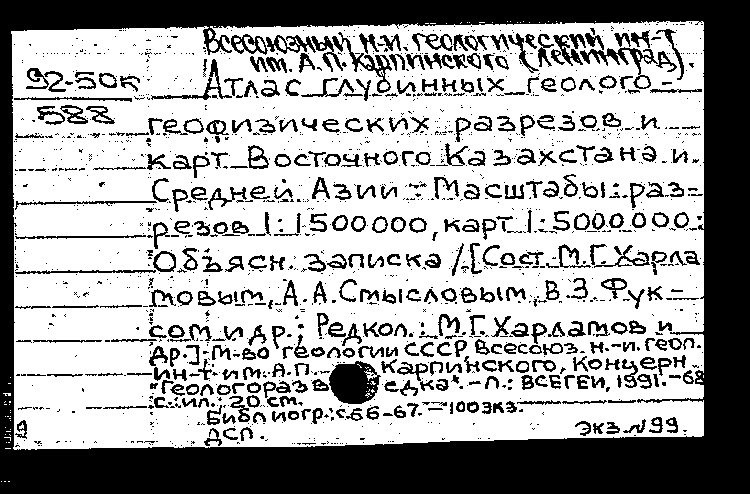 Всесоюзный н-и. геологический ин-т
им. А.П. Карпинского (Ленинград).
92-50к
588
Атлас глубинных геолого-
геофизических разрезов и
карт Восточного Казахстана и
Средней Азии : Масштабы: раз-
резов 1:1500000, карт 1:5000000:
Объясн. записка / [Сост. М.Г. Харла
мовым, А.А. Смысловым, В.З. Фук-
сом и др.; Редкол.: М.Г. Харламов и
др.]; М-во геологии СССР, Всесоюз. н.-и. геол.
ин-т им. А.П. Карпинского, Концерн
"Геологоразведка". - Л.: ВСЕГЕИ, 1991. - 68
с.: ил.; 20 см.
Библиогр.: с. 66-67. - 100 экз.
ДСП.
экз. N 99.